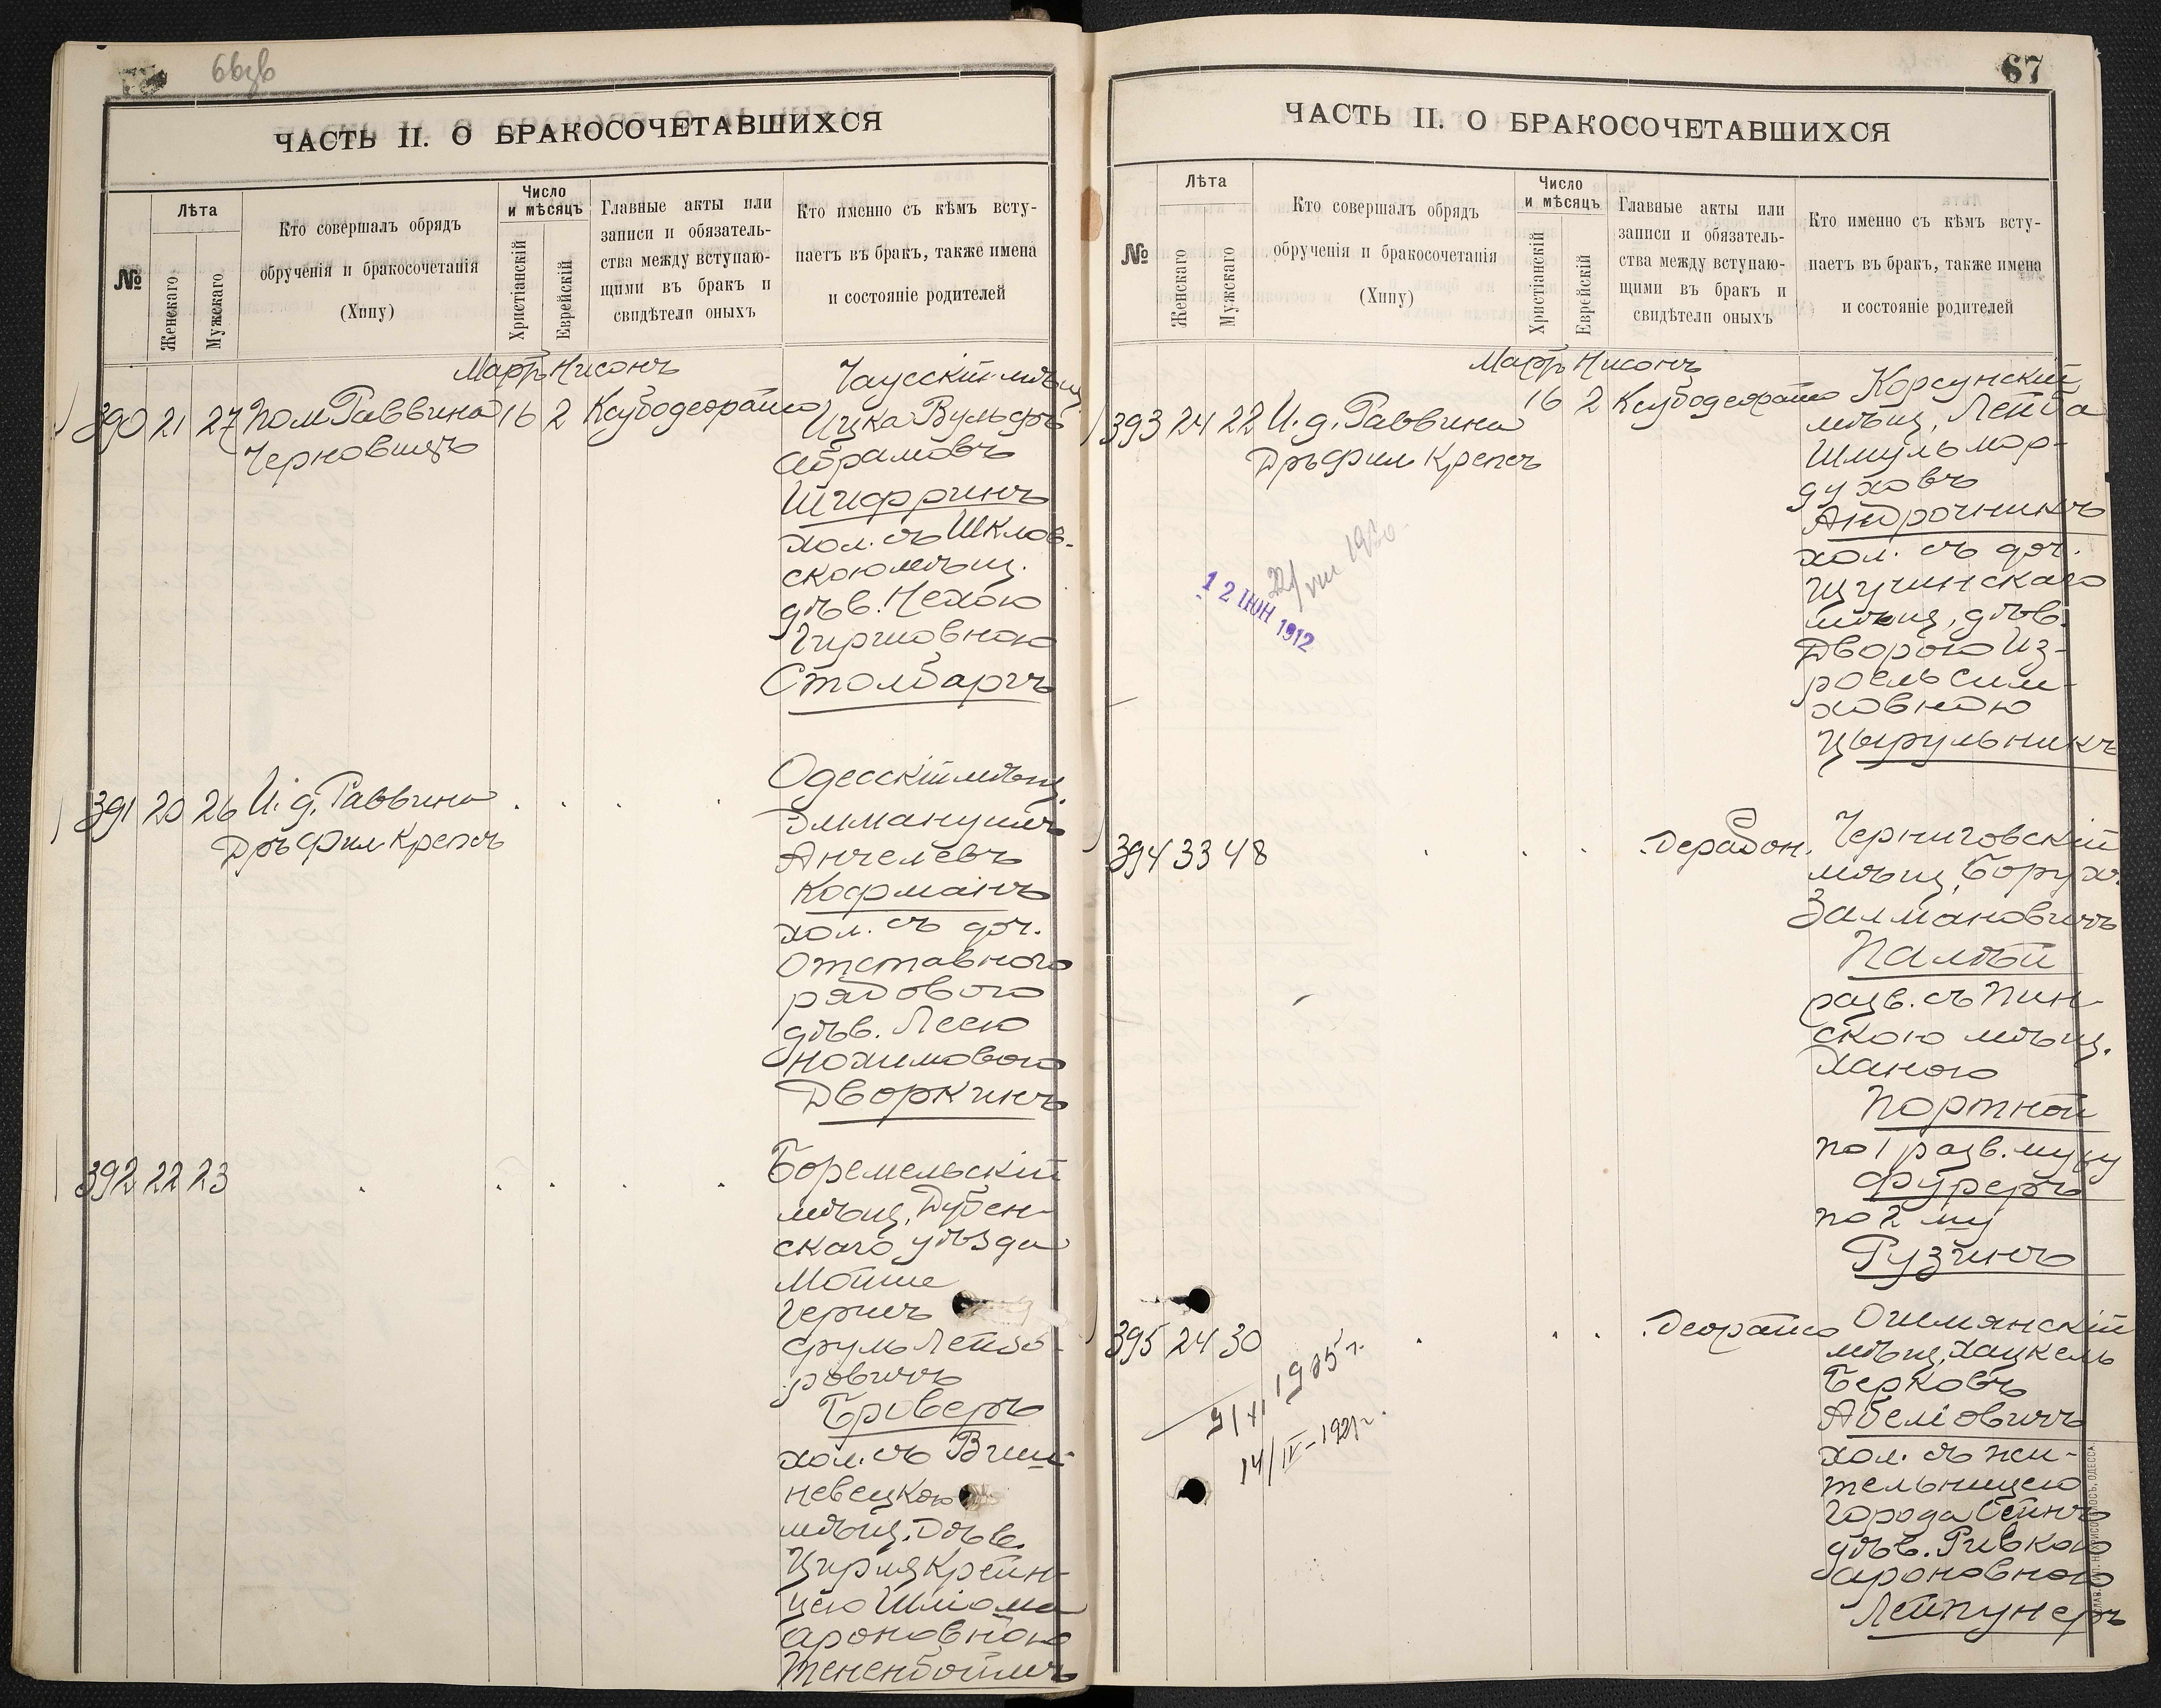 ЧАСТЬ II. О БРАКОСОЧЕТАВШИХСЯ
№
Лѣта
Женскаго
Мужскаго
Кто совершалъ обрядъ
обрученія и бракосочетанія
(Хипу)
Число
и мѣсяцъ
Христіанскій
Еврейскій
Главные акты или
записи и обязатель-
ства между вступаю-
щими въ бракъ и
свидѣтели оныхъ
Кто именно съ кѣмъ всту-
паетъ въ бракъ, также имена
и состояніе родителей
Мартъ Нисонъ
390 21 27 Пом Раввина 16 2 Ксубодеорайсо
Черновицъ
Чаусскій мѣщ.
Ицка Вульфъ
Абрамовъ
Шифринъ
хол. съ Шклов-
скою мѣщ.
дѣв. Нехою
Гиршовною
Столбаргъ
391 20 26 И. д. Раввина
Дръ Фил Крепсъ
Одесскій мѣщ.
Эммануилъ
Анчелевъ
Кофманъ
хол. съ доч.
Отставного
рядового
дѣв. Леею
Нохимовою
Дворкинъ
392 22 23
Боремельскій
мѣщ. Дубен-
скаго уѣзда
Мойше
Герш
Срулъ Лейзо-
ровичъ
Броверъ
хол. съ Виш-
невецкою
мѣщ. Дѣв.
Цирля Крейн-
цею Шліома
Ароновною
Тененбоймъ
67
ЧАСТЬ II. О БРАКОСОЧЕТАВШИХСЯ
№
Лѣта
Женскаго
Мужскаго
Кто совершалъ обрядъ
обрученія и бракосочетанія
(Хипу)
Число
и мѣсяцъ
Христіанскій
Еврейскій
Главные акты или
записи и обязатель-
ства между вступаю-
щими въ бракъ и
свидѣтели оныхъ
Кто именно съ кѣмъ всту-
паетъ въ бракъ, также имена
и состояніе родителей
Мартъ Нисонъ
393 24 22 И. д. Раввина 16 2 Ксубодеорайсо
Дръ Фил Крепсъ
Корсунскій
мѣщ. Лейба
Шмуль Мор-
духовъ
Андрочникъ
хол. съ доч.
Щучинскаго
мѣщ, дѣв.
Дворою Из-
роель Сим-
ховною
Цырульникъ
12 ІЮН 1912
394 33 48
Дерабон.
Черниговскій
мѣщ. Борух
Залмановичъ
Палѣй
разв. съ Пин-
скою мѣщ.
Ханою
Портной
по 1 разв. мужу
Фуреръ
по 2 му
Рузинъ
395 24 30
Деорайсо
Ошмянскій
мѣщ. Хацкель
Берковъ
Абеліовичъ
хол. съ жи-
тельницею
города Сейнъ
дѣв. Ривкою
Ароновною
Лейпунеръ
14/IV-1921 г.